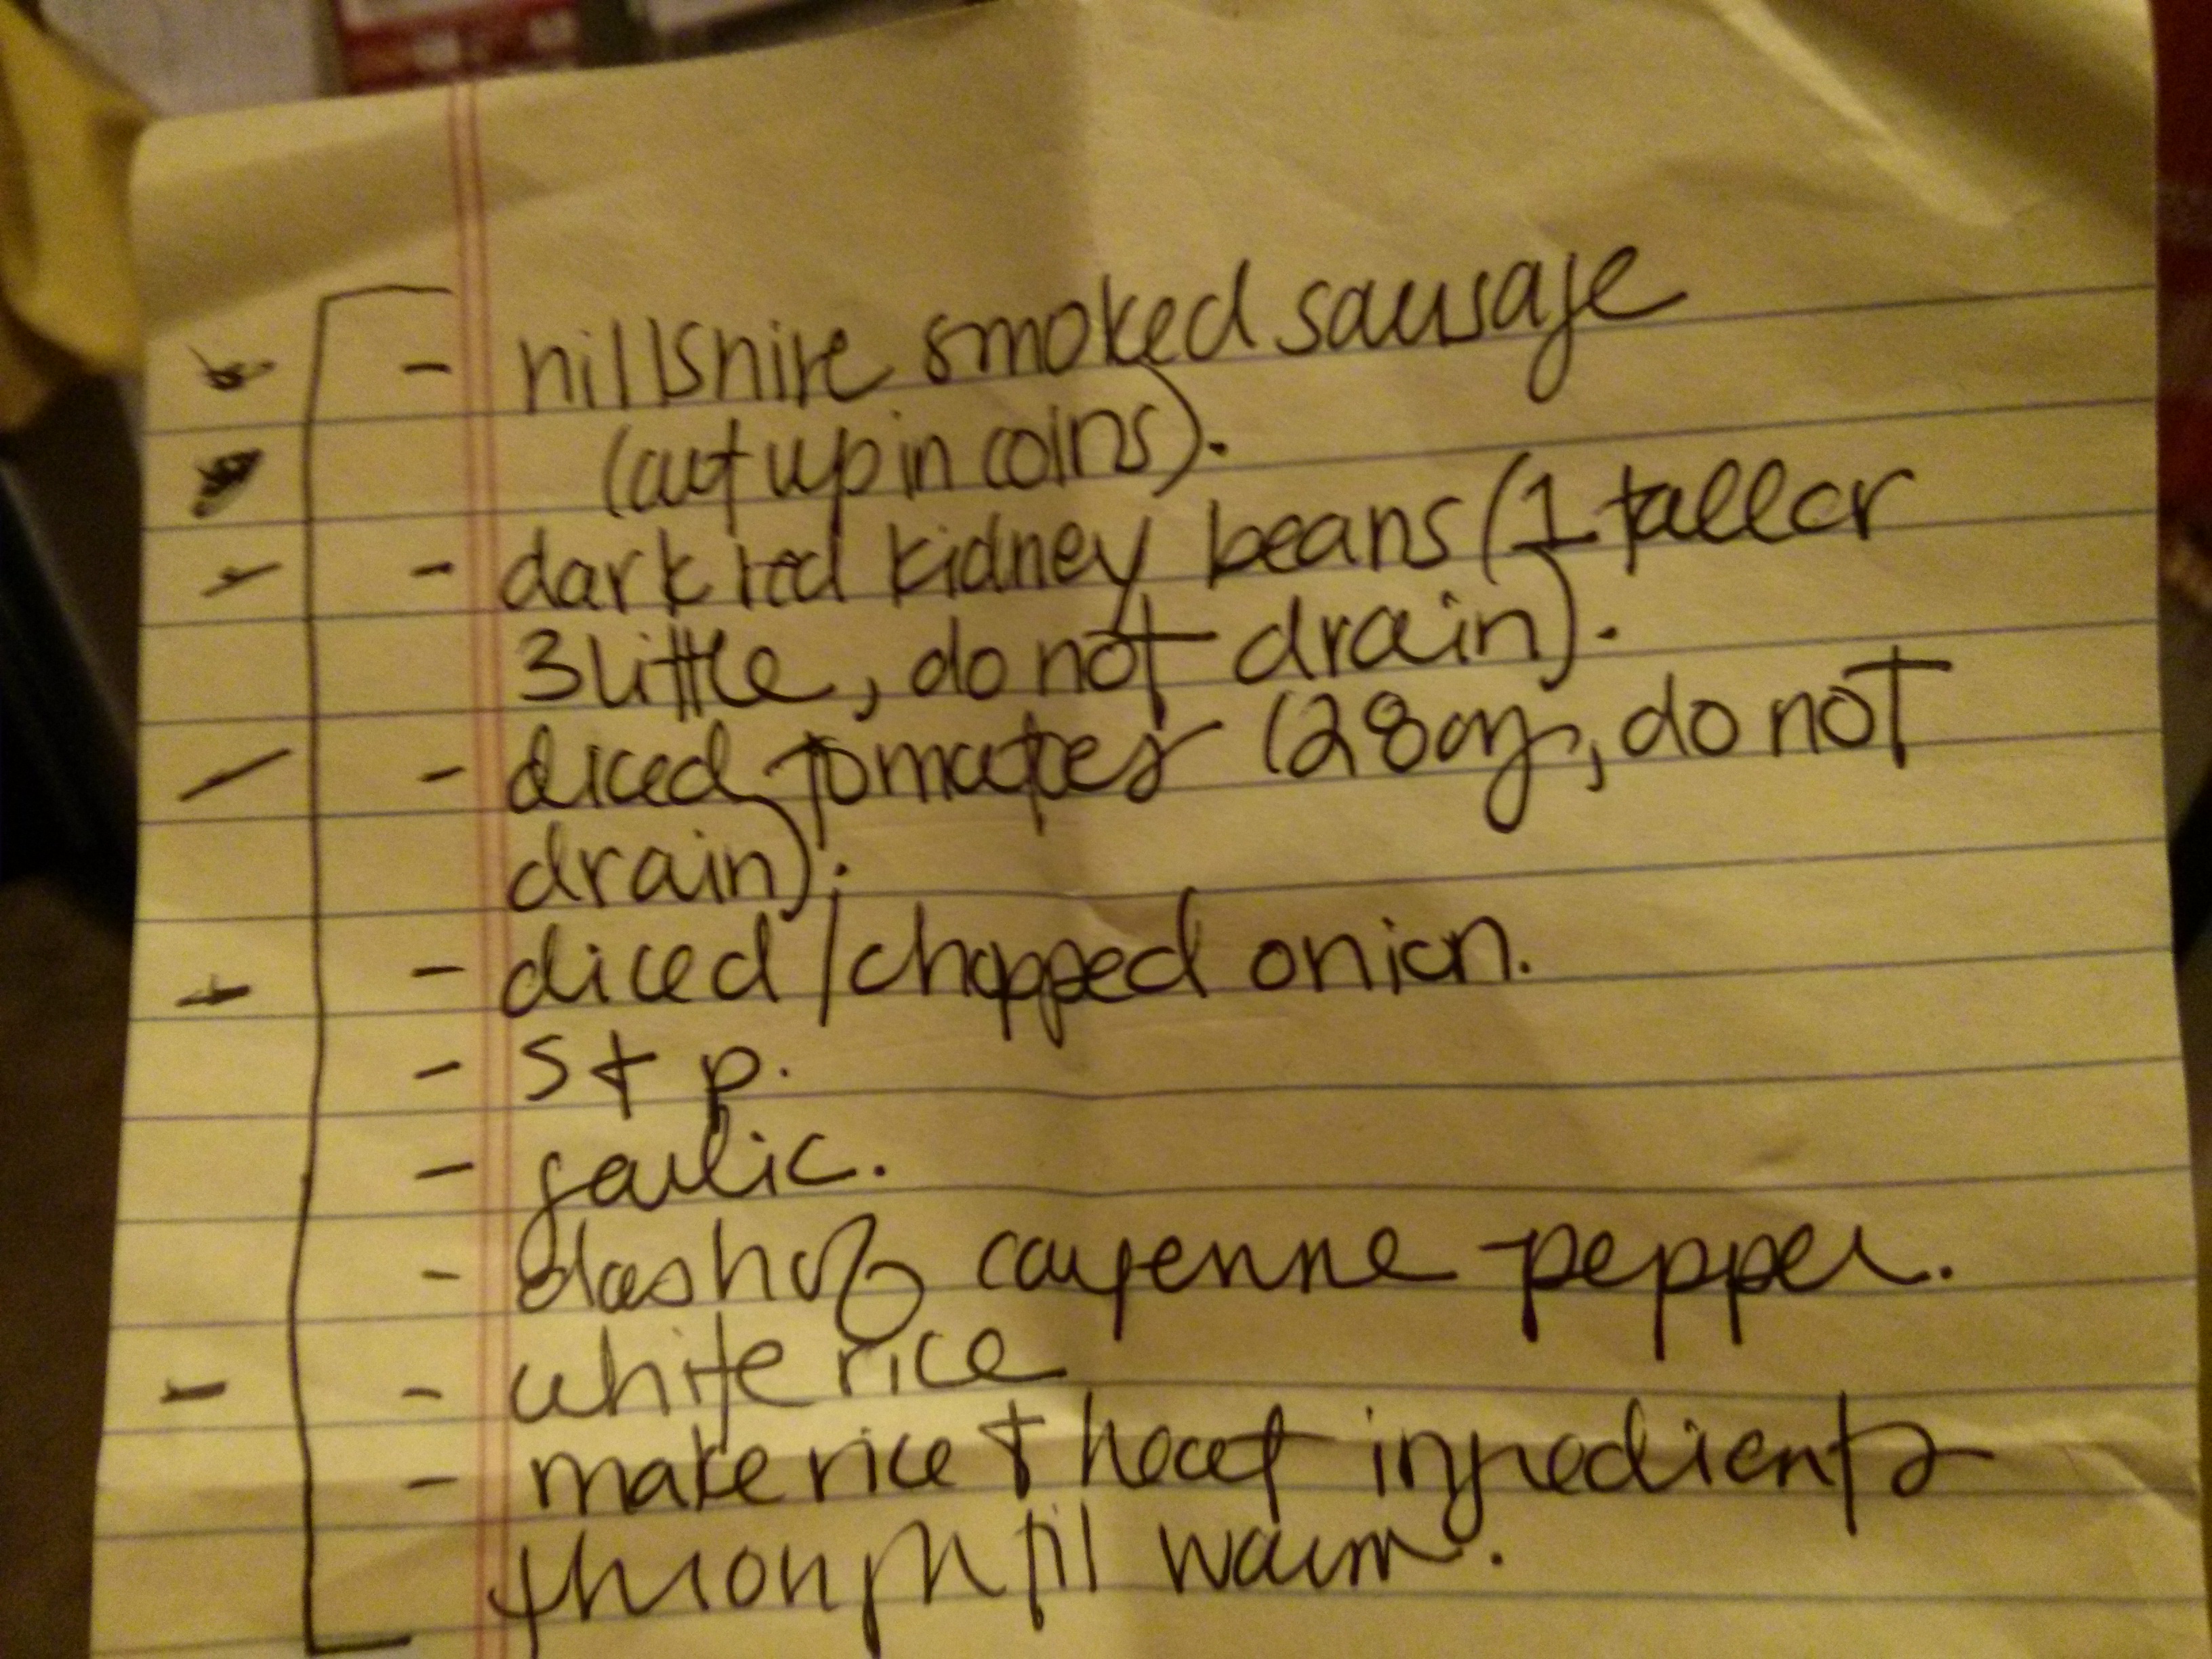 - hillshire smoked sausage
(cut up in coins).
- dark red kidney beans (1 tall or
3 little, do not drain).
- diced tomatoes (28oz, do not
drain).
- diced/chopped onion.
- s + p.
- garlic.
- dash of cayenne pepper.
- white rice
- make rice + heat ingredients
through til warm.